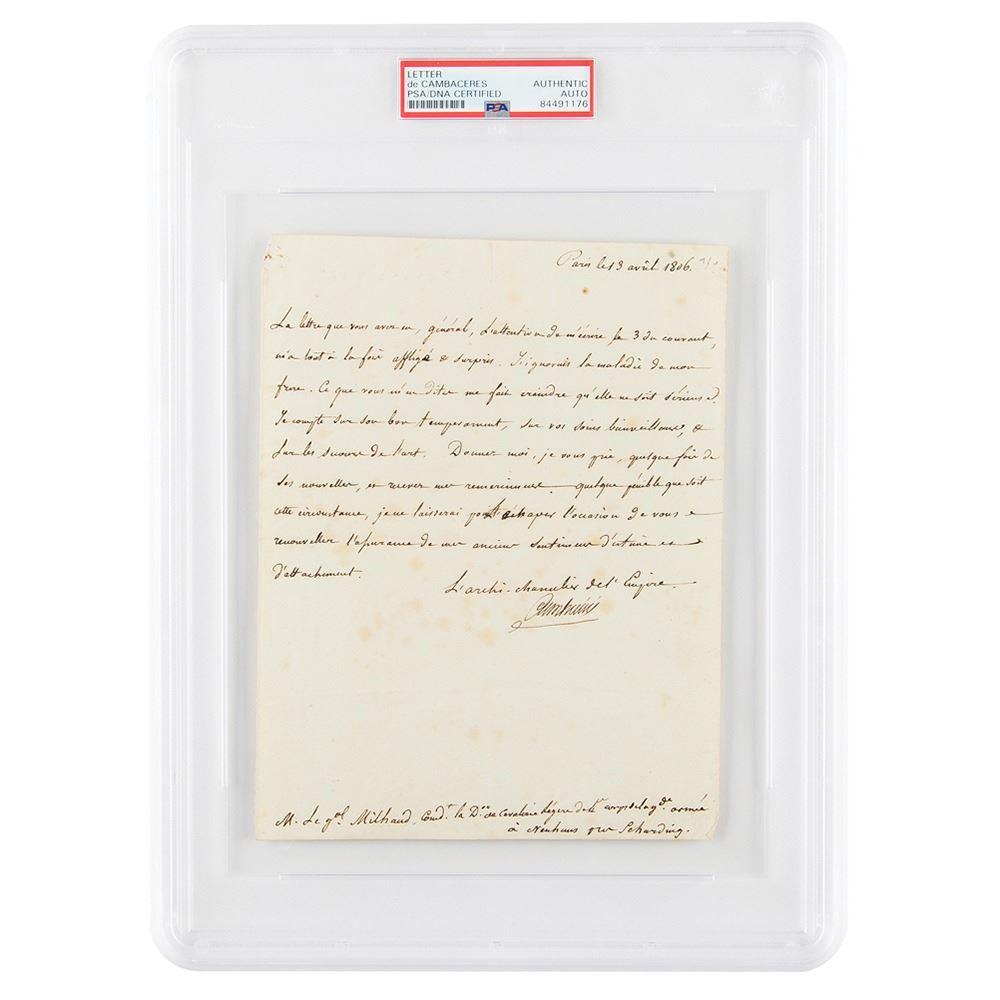 LETTER
de CAMBACERES
PSA/DNA CERTIFIED
AUTHENTIC
AUTO
84491176
PSA
Paris le 13 avril 1806.
La lettre que vous avez eu, général, l'attention de m'écrire, le 3 du courant,
m'a tout à la fois affligé & surpris. J'ignorais la maladie de mon
frere. Ce que vous m'en dites me fait craindre qu'elle ne soit sérieuse.
Je compte sur son bon tempérament, sur vos soins bienveillans, &
sur les secours de l'art. Donnez moi, je vous prie, quelque fois de
ses nouvelles, et recevez mes remerciemens. quelque pénible que soit
cette circonstance, je ne laisserai point échaper l'occasion de vous
renouveller l'assurance de mes anciens sentimens d'estime et
d'attachement.
L'archi-chancelier de l'Empire.
Cambacérès
M. Le gal Milhaud, Comdt la Don de Cavalerie légère du 1er corps de la gde armée
à Neuhaus sur Scharding.